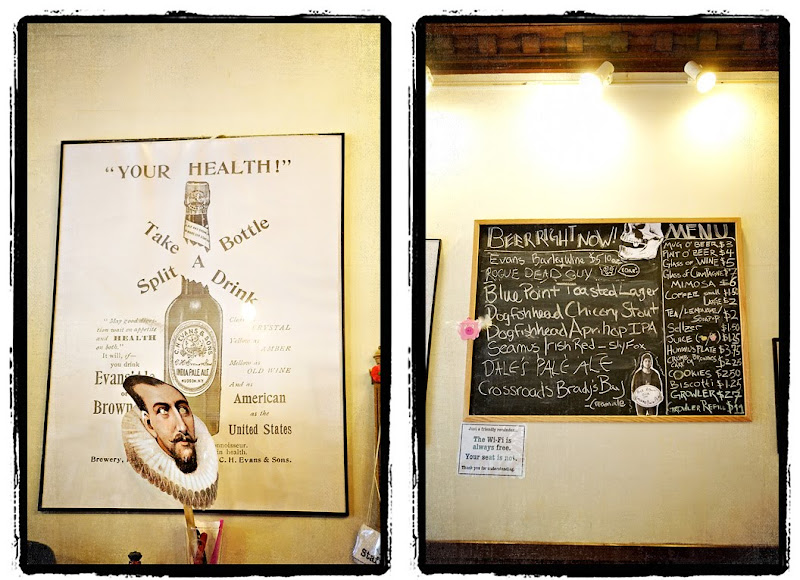 "YOUR HEALTH!"
Take A Bottle
Split A Drink
C.H. EVANS & SONS
INDIA PALE ALE
HUDSON, N.Y.
"May good
wait on appetite
and HEALTH
on both."
It will, if—
you drink
Brown
CRYSTAL
AMBER
Mellow as
OLD WINE
And as
American
as the
United States
in health.
Brewery,
C. H. Evans & Sons.
BEER RIGHT NOW!
Evans BarleyWine $5 10oz
ROGUE DEAD GUY
Blue Point Toasted Lager
Dogfishhead Chicory Stout
Dogfishhead Aprihop IPA
Seamus Irish Red - Sly Fox
DALE'S PALE ALE
Crossroads Brady's Bay
MENU
MUG O' BEER $3
PINT O' BEER $4
GLASS OF WINE $5
GLASS OF CHAMPAGNE $7
MIMOSA $6
COFFEE small 1.50
LARGE $2
TEA/LEMONADE/
SODA-P $2
Seltzer $1.50
JUICE
HUMMUS PLATE
COOKIES $2.50
BISCOTTI $1.25
GROWLER
GROWLER REFILL
Just a friendly reminder...
The Wi-Fi is
always free.
Your seat is not.
Thank you for understanding.